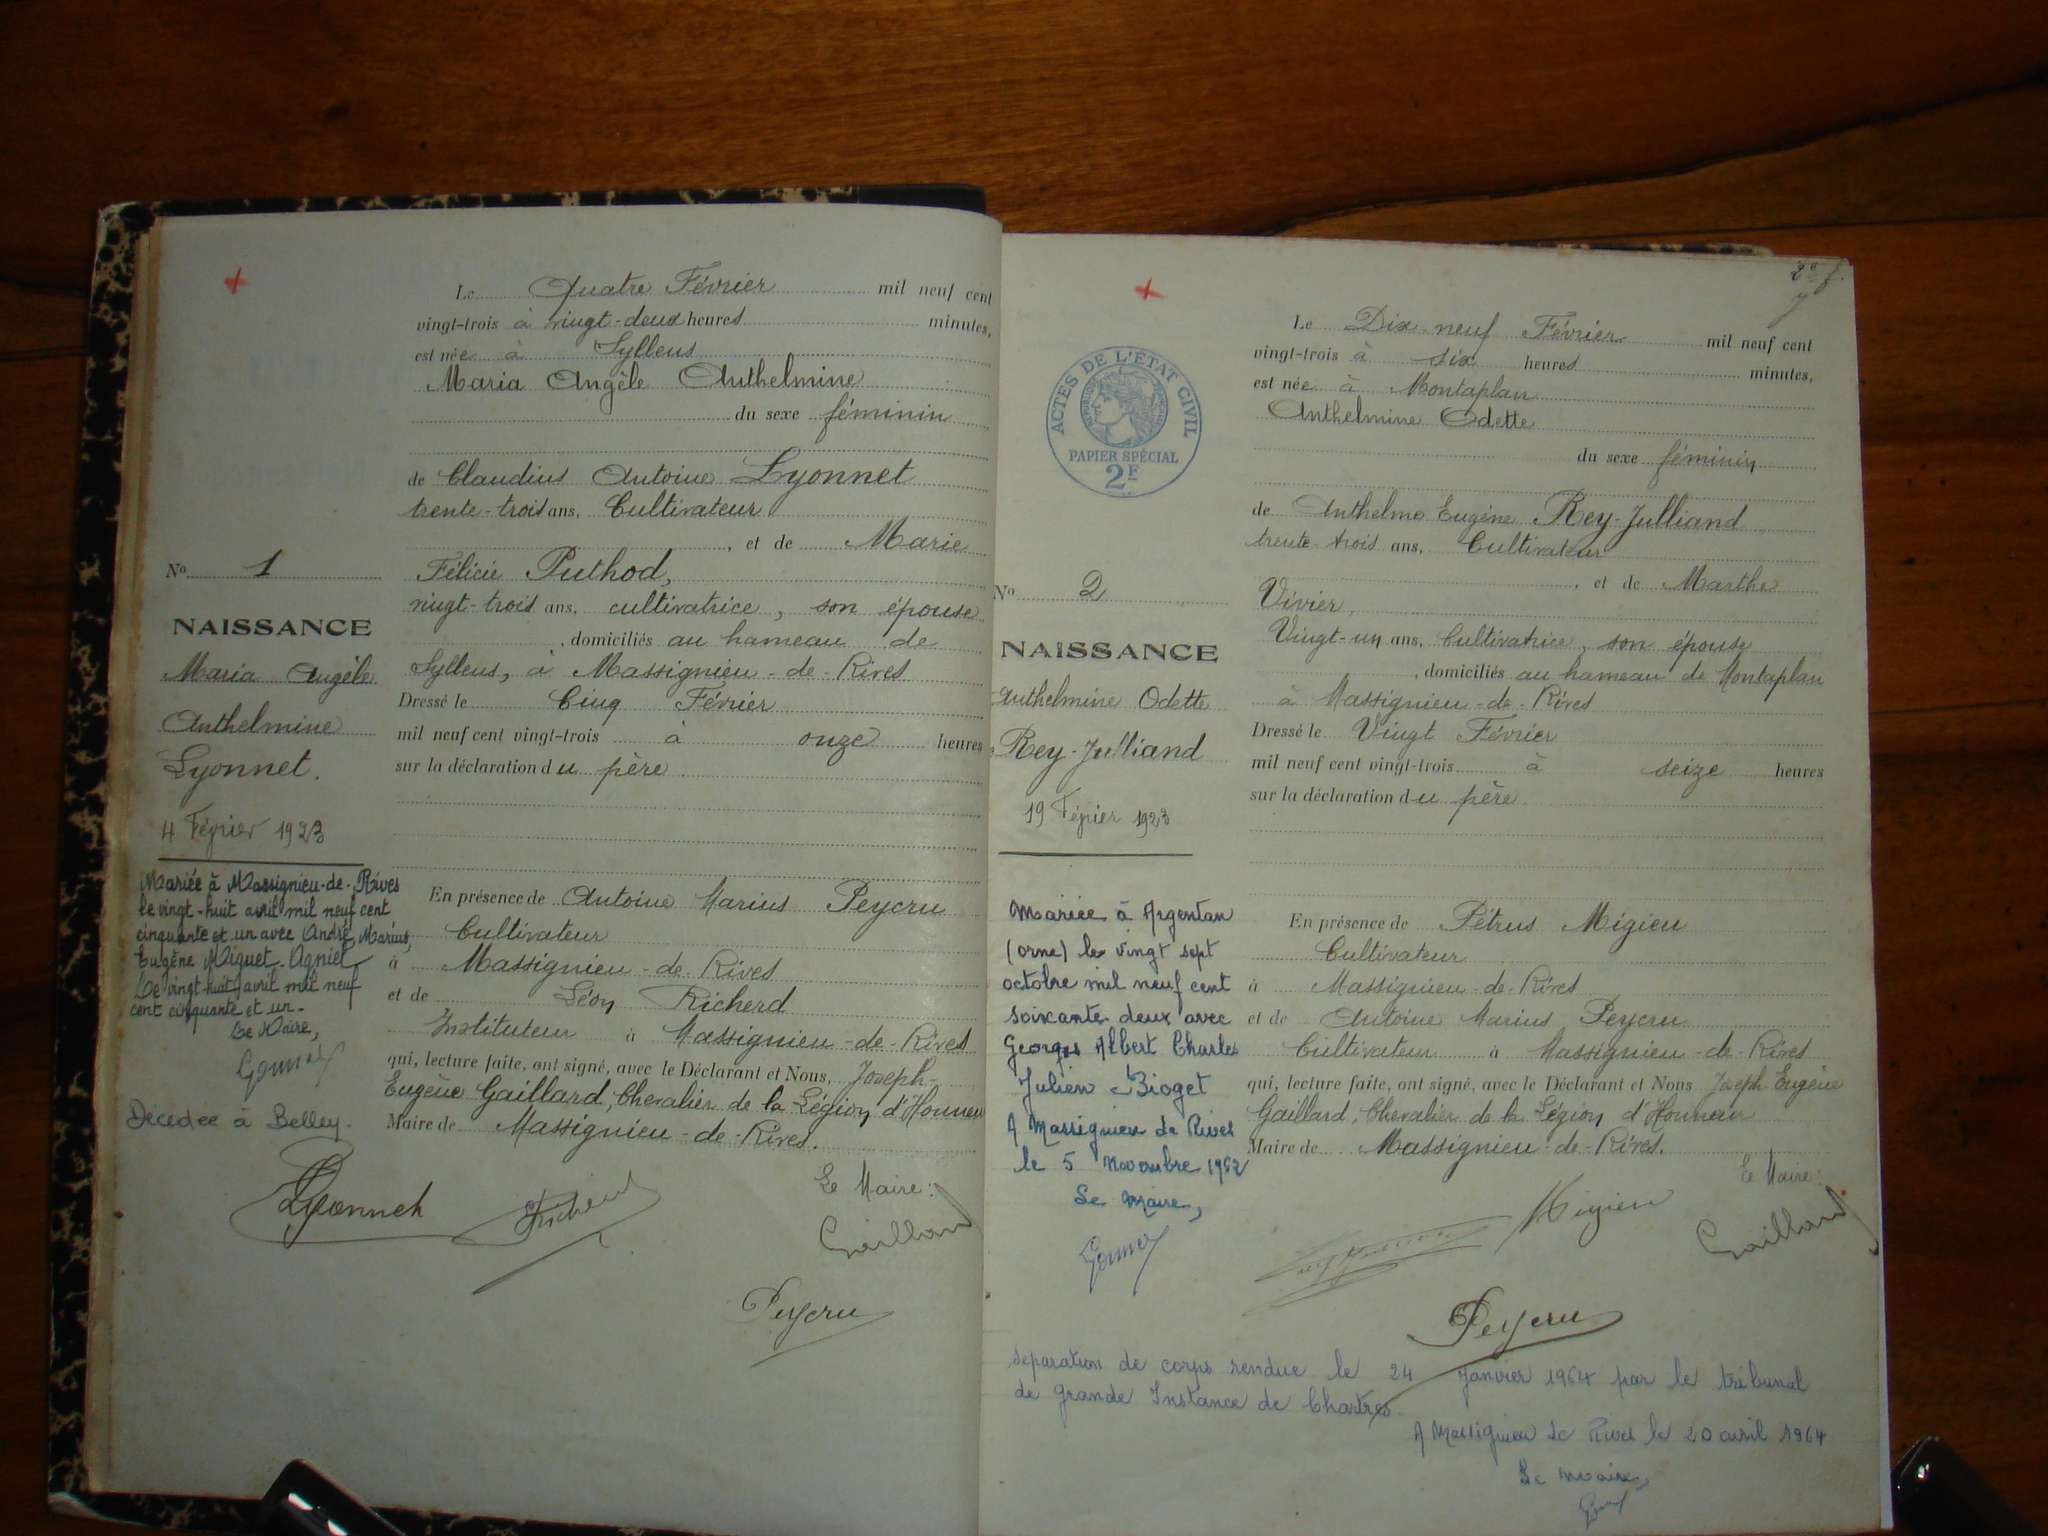 Le Quatre Février mil neuf cent
vingt-trois à vingt-deux heures minutes,
est née à Sylleus
Maria Angèle Anthelmine
du sexe féminin
de Claudius Antoine Lyonnet
trente-trois ans, Cultivateur
, et de Marie
Félicie Puthod,
vingt-trois ans, cultivatrice, son épouse
, domiciliés au hameau de
Sylleus, à Massignieu-de-Rives
Dressé le Cinq Février
mil neuf cent vingt-trois à onze heures
sur la déclaration du père
En présence de Antoine Marius Peycru
Cultivateur
à Massignieu-de-Rives
et de Léon Richerd
Instituteur à Massignieu-de-Rives
qui, lecture faite, ont signé, avec le Déclarant et Nous, Joseph-
Eugène Gaillard, Chevalier de la Légion d'Honneur
Maire de Massignieu-de-Rives.
Le Maire:
Lyonnet
Richerd
Gaillard
Peycru
No 1
NAISSANCE
Maria Angèle
Anthelmine
Lyonnet.
4 Février 1923
Mariée à Massignieu-de-Rives
le vingt-huit avril mil neuf cent
cinquante et un avec André Marius,
Eugène Miguet-Agniel
Le vingt-huit avril mil neuf
cent cinquante et un-
Le Maire,
Décédée à Belley.
2e f.
ACTES DE L'ÉTAT CIVIL
PAPIER SPÉCIAL
2F
Le Dix-neuf Février mil neuf cent
vingt-trois à six heures minutes,
est née à Montaplan
Anthelmine Odette
du sexe féminin
de Anthelme Eugène Rey-Julliand
trente-trois ans, Cultivateur
, et de Marthe
Vivier,
Vingt-un ans, Cultivatrice, son épouse
, domiciliés au hameau de Montaplan
à Massignieu-de-Rives
Dressé le Vingt Février
mil neuf cent vingt-trois à seize heures
sur la déclaration du père.
En présence de Pétrus Migieu
Cultivateur
à Massignieu-de-Rives
et de Antoine Marius Peycru
Cultivateur à Massignieu-de-Rives
qui, lecture faite, ont signé, avec le Déclarant et Nous Joseph-Eugène
Gaillard, Chevalier de la Légion d'Honneur
Maire de Massignieu-de-Rives.
Le Maire:
Migieu
Gaillard
Peycru
No 2
NAISSANCE
Anthelmine Odette
Rey-Julliand
19 Février 1923
Mariée à Argentan
(orne) le vingt sept
octobre mil neuf cent
soixante deux avec
Georges Albert Charles
Julien Bioget
A Massignieu de Rives
le 5 Novembre 1962
Le Maire,
separation de corps rendue le 24 Janvier 1964 par le tribunal
de grande Instance de Chartres.
A Massignieu de Rives le 20 avril 1964
Le Maire,